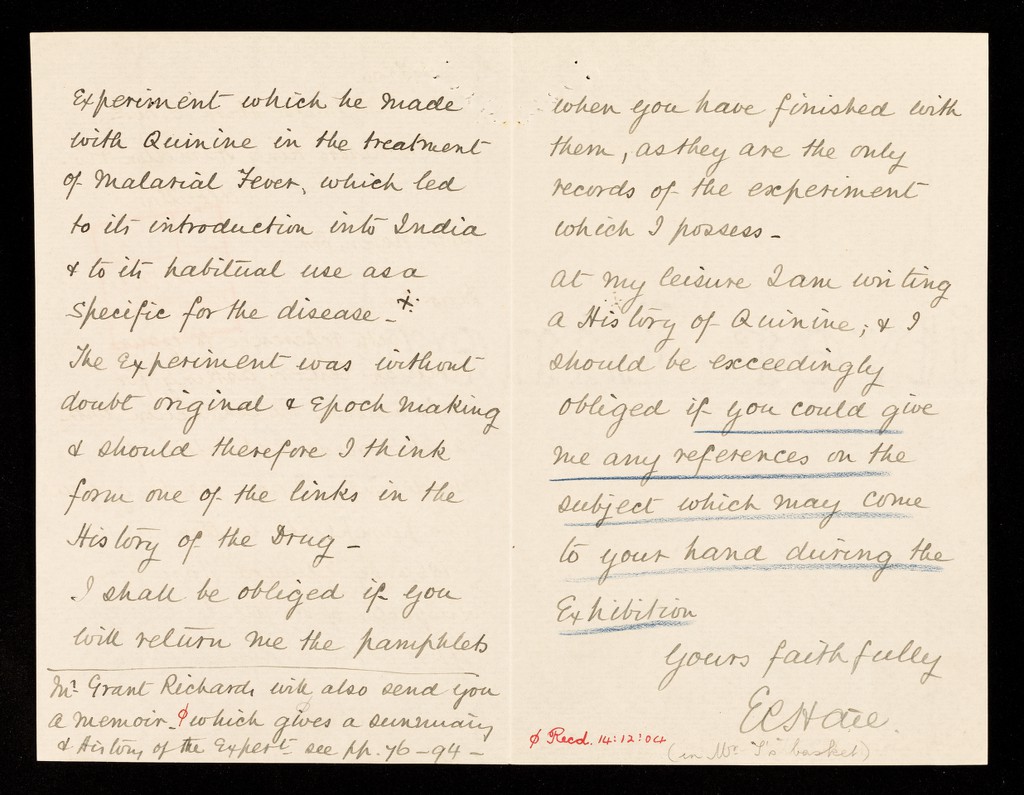 Experiment which he made
with Quinine in the treatment
of Malarial Fever, which led
to its introduction into India
& to its habitual use as a
Specific for the disease -
The Experiment was without
doubt original & Epoch making
& should therefore I think
form one of the links in the
History of the Drug -
I shall be obliged if you
will return me the pamphlets
Mr Grant Richards will also send you
a memoir φ which gives a summary
& History of the Expert see pp. 76-94 -
when you have finished with
them, as they are the only
records of the experiment
which I possess -
At my leisure I am writing
a History of Quinine; & I
should be exceedingly
obliged if you could give
me any references on the
subject which may come
to your hand during the
Exhibition
Yours faithfully
EC Hare
φ Recd. 14:12:04
(in Mr. T's basket)